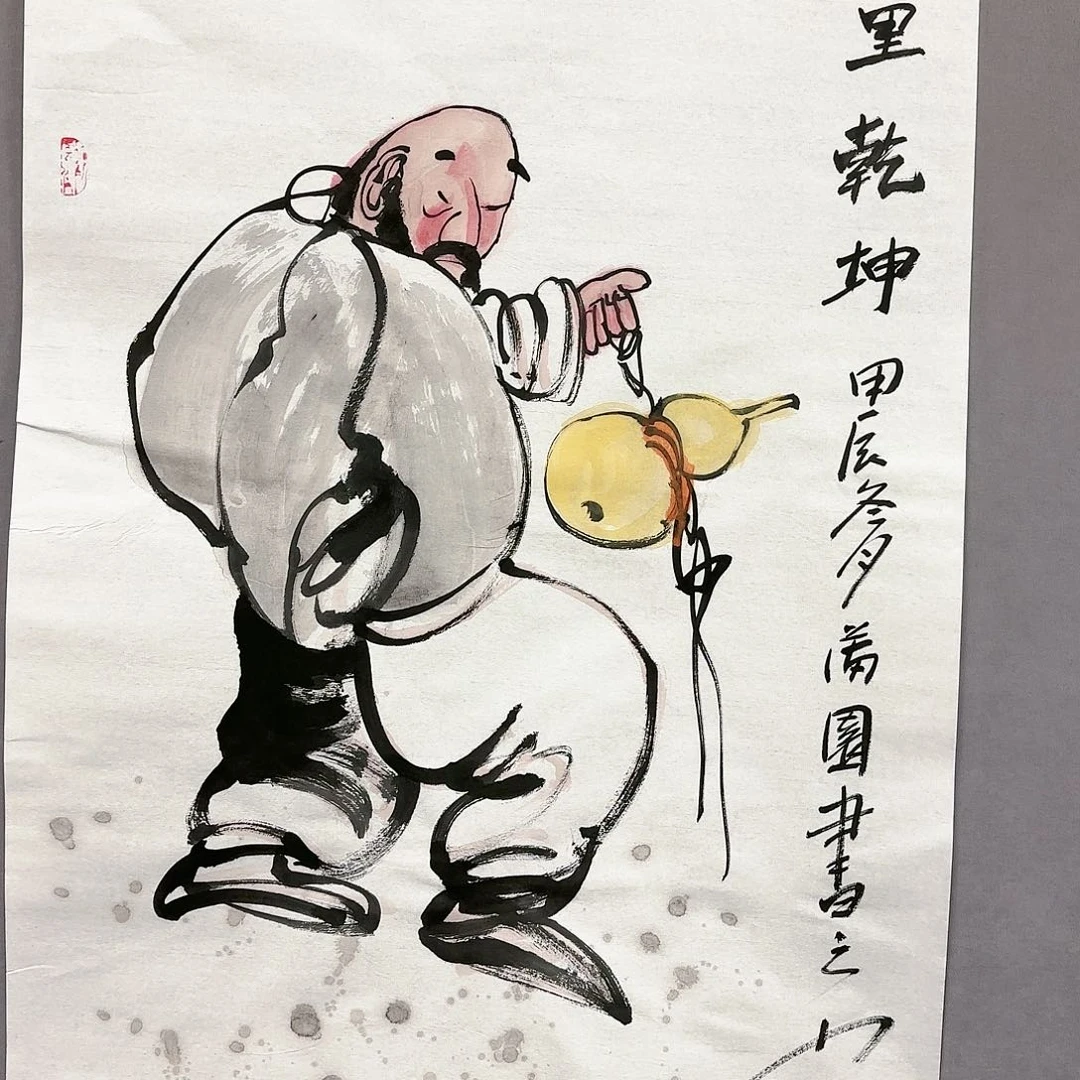 里乾坤甲辰冬月萬園書之